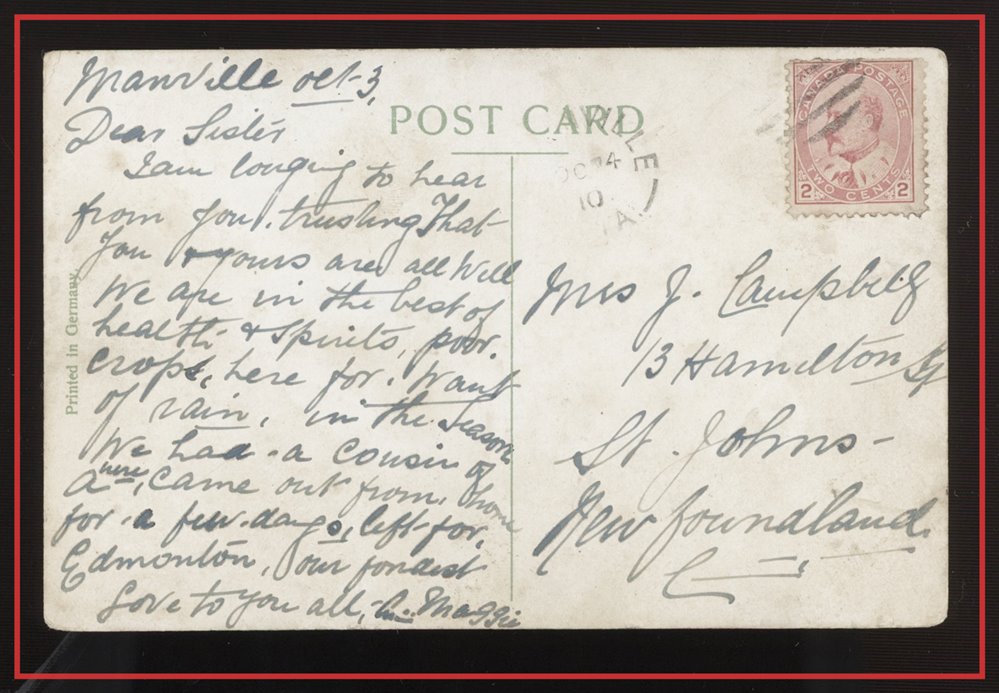 Manville Oct 3,
Dear Sister
I am longing to hear
from you. trusting That
You & yours are all Well
We are in the best of
health & spirits, poor.
crops, here for. Want
of rain, in the Season
We had a cousin of
here, came out from, home
for a few days, left for,
Edmonton, our fondest
Love to You all, Maggie
Printed in Germany.
POST CARD
CANADA POSTAGE
2 TWO CENTS 2
OC 4
10
Mrs J. Campbell
13 Hamilton St
St. Johns
Newfoundland